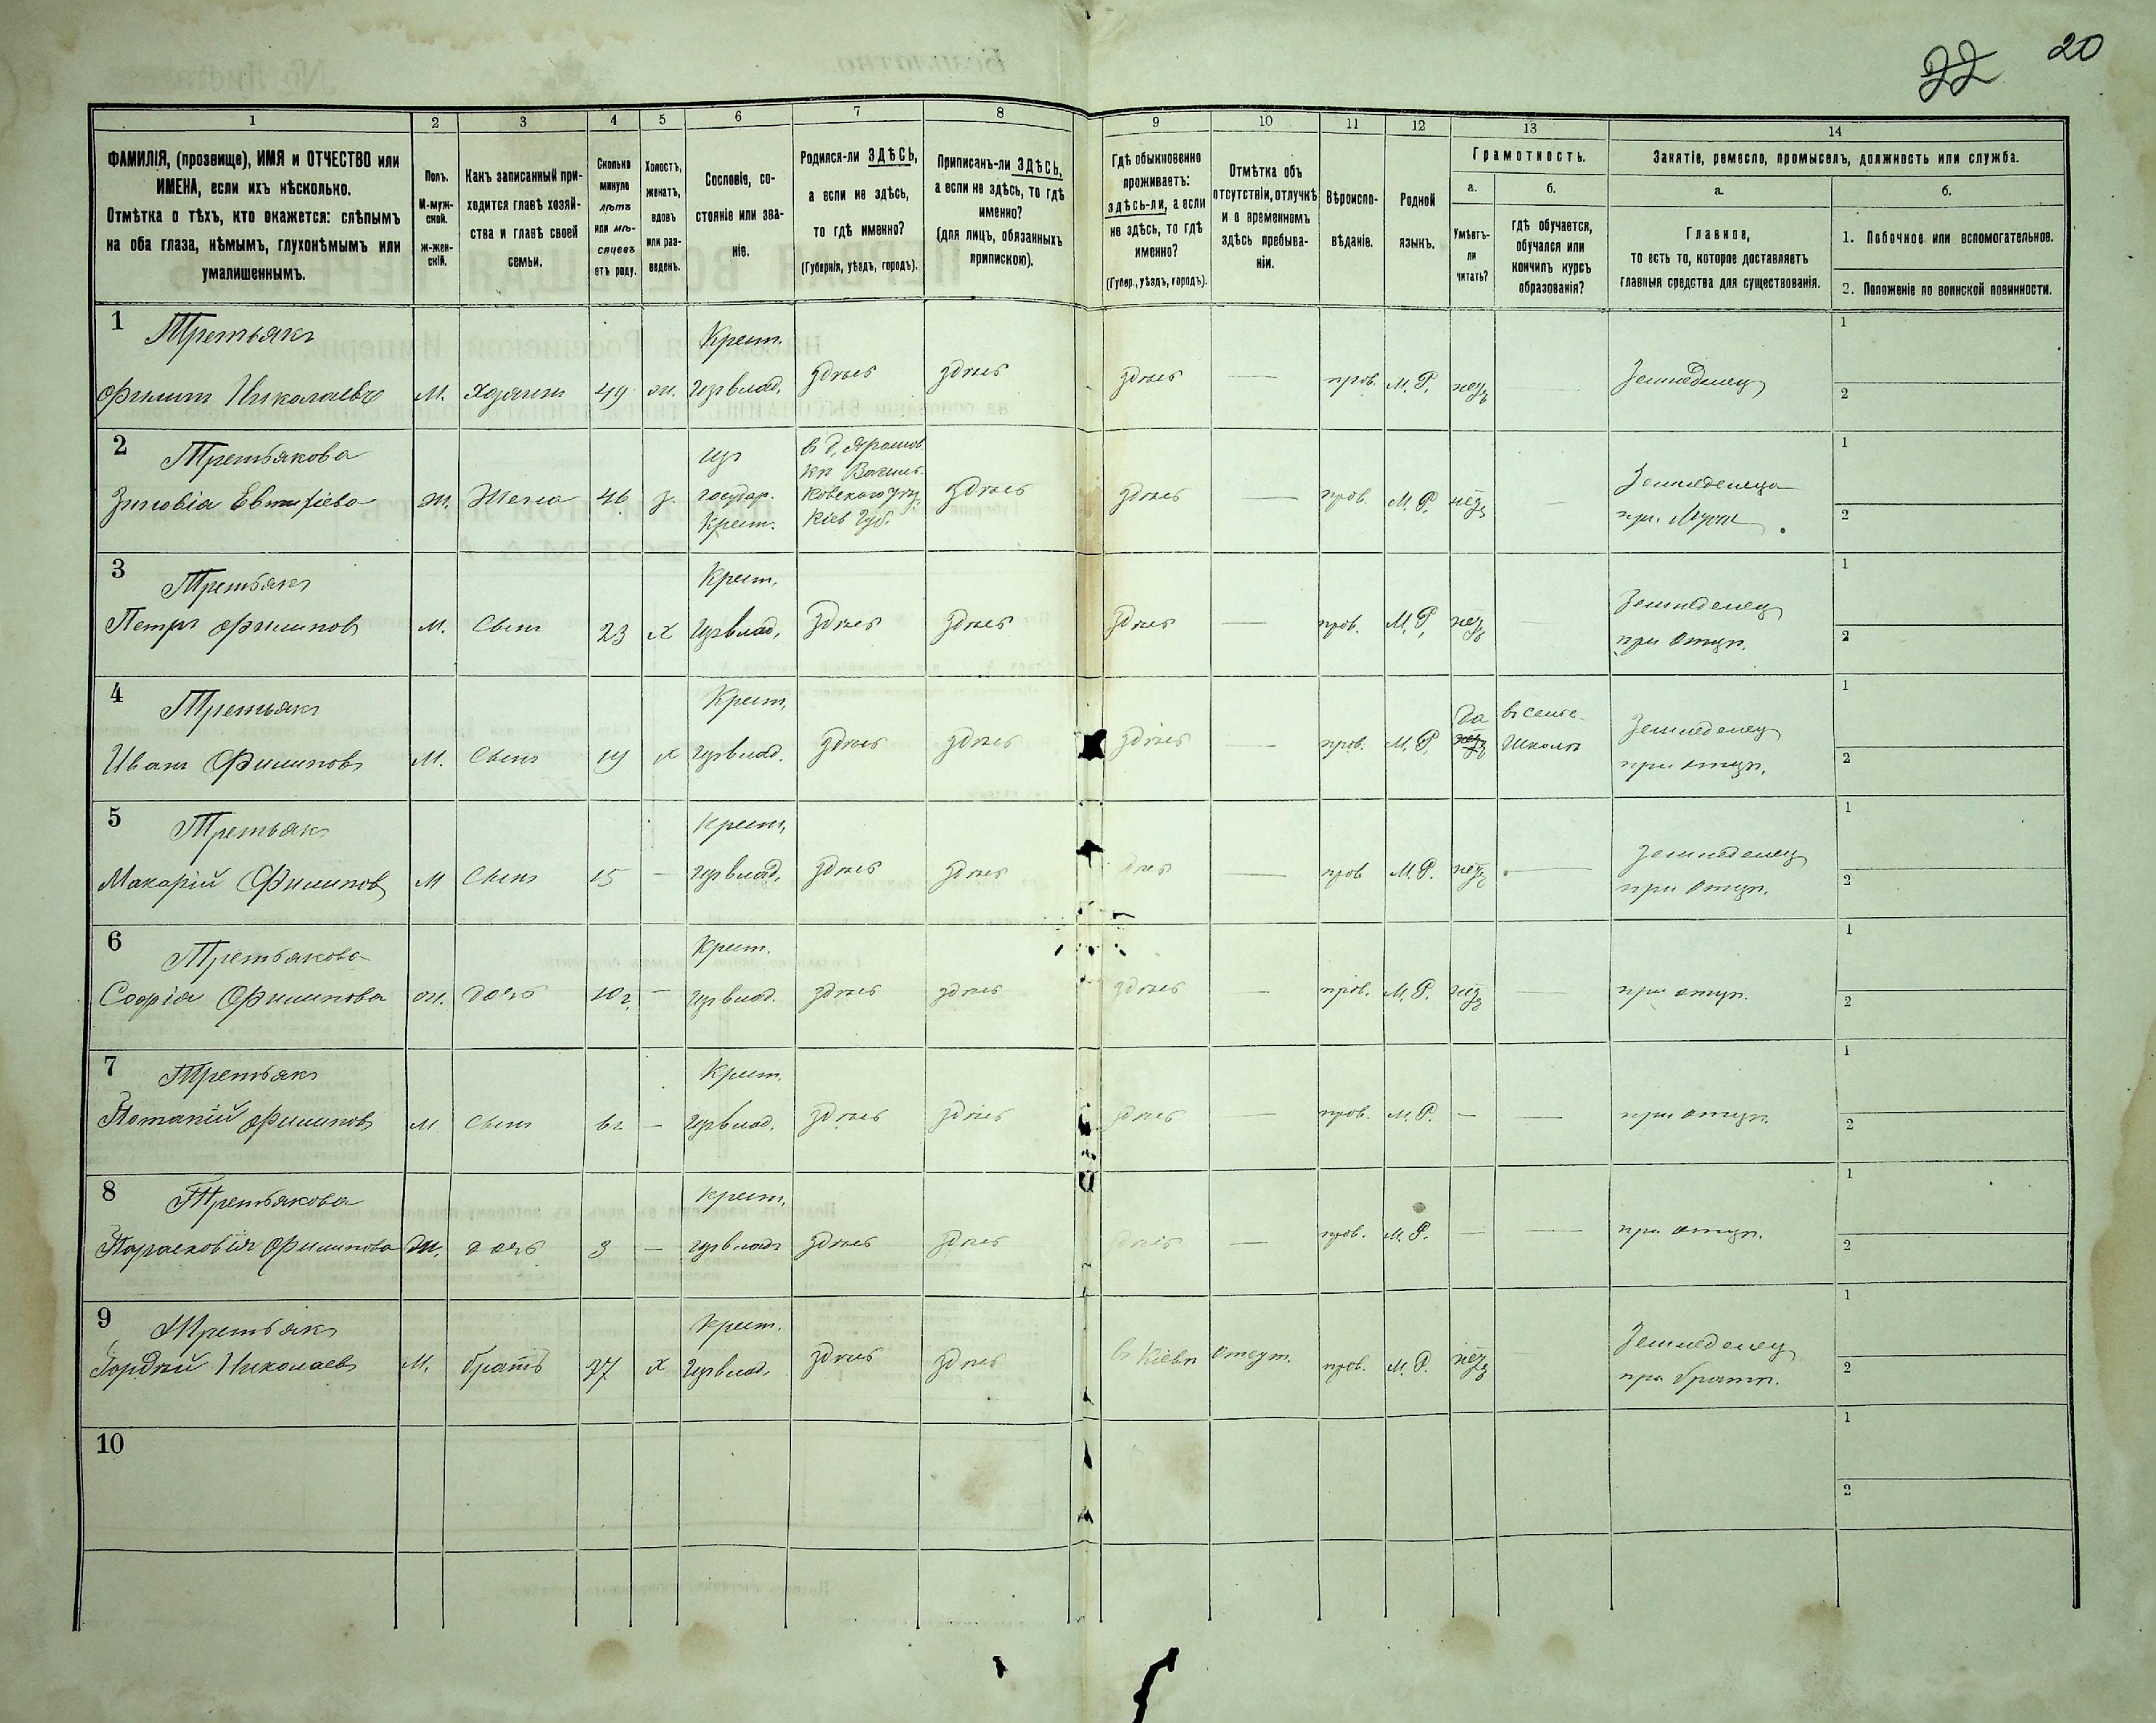 22 20
1 2 3 4 5 6 7 8 9 10 11 12 13 14
ФАМИЛІЯ, (прозвище), ИМЯ и ОТЧЕСТВО или
ИМЕНА, если ихъ нѣсколько.
Отмѣтка о тѣхъ, кто окажется: слѣпымъ
на оба глаза, нѣмымъ, глухонѣмымъ или
умалишеннымъ.
Полъ.
М-муж-
ской.
Ж-жен-
скій.
Какъ записанный при-
ходится главѣ хозяй-
ства и главѣ своей
семьи.
Сколько
минуло
лѣтъ
или мѣ-
сяцевъ
отъ роду.
Холостъ,
женатъ,
вдовъ
или раз-
веденъ.
Сословіе, со-
стояніе или зва-
ніе.
Родился-ли ЗДѢСЬ,
а если не здѣсь,
то гдѣ именно?
(Губернія, уѣздъ, городъ).
Приписанъ-ли ЗДѢСЬ,
а если не здѣсь, то гдѣ
именно?
(для лицъ, обязанныхъ
припискою).
Гдѣ обыкновенно
проживаетъ:
здѣсь-ли, а если
не здѣсь, то гдѣ
именно?
(Губер., уѣздъ, городъ).
Отмѣтка объ
отсутствіи, отлучкѣ
и о временномъ
здѣсь пребыва-
ніи.
Вѣроиспо-
вѣданіе.
Родной
языкъ.
Грамотность.
а.
Умѣетъ-
ли
читать?
б.
гдѣ обучается,
обучался или
кончилъ курсъ
образованія?
Занятіе, ремесло, промыселъ, должность или служба.
а.
Главное,
то есть то, которое доставляетъ
главныя средства для существованія.
б.
1. Побочное или вспомогательное.
2. Положеніе по воинской повинности.
1 Третьякъ Крест. 1
Филипп Николаевъ М. Хозяинъ 49 ж. изъ влад. здѣсь здѣсь здѣсь — проб. М. Р. — Земледѣлец 2
2 Третьякова из в д. 1
Зиновія Ж. Жена 46 з. государ. здѣсь здѣсь — М. Р. Земледѣлица
Крест. Кіев Губ. при 2
3 Третьякъ Крест. 1
Петръ Филипов М. Сынъ 23 х изъ влад. здѣсь здѣсь здѣсь — М. Р. Земледѣлец
при отцѣ. 2
4 Третьякъ Крест. да в сельс. 1
Иванъ Филипов М. Сынъ 19 х изъ влад. здѣсь здѣсь здѣсь — М. Р. Школѣ Земледѣлец
при отцѣ. 2
5 Третьякъ Крест. 1
Макарій Филипов М Сынъ 15 — изъ влад. здѣсь здѣсь здѣсь — М. Р. — Земледѣлец
при отцѣ. 2
6 Третьякова Крест. 1
Софія Филипова ж. дочь 10 г. — изъ влад. здѣсь здѣсь здѣсь — М. Р. — при отцѣ. 2
7 Третьякъ Крест. 1
Потапій Филипов М Сынъ 6 г — изъ влад. здѣсь здѣсь здѣсь — М. Р. — — при отцѣ. 2
8 Третьякова Крест. 1
Парасковія Филипова Ж. дочь 3 — изъ влад. здѣсь здѣсь здѣсь — М. Р. — — при отцѣ. 2
9 Третьякъ Крест. 1
Гордѣй Николаев М. братъ х изъ влад. здѣсь здѣсь в Кіевѣ отсут. М. Р. — Земледѣлец
при братѣ. 2
10 1
2